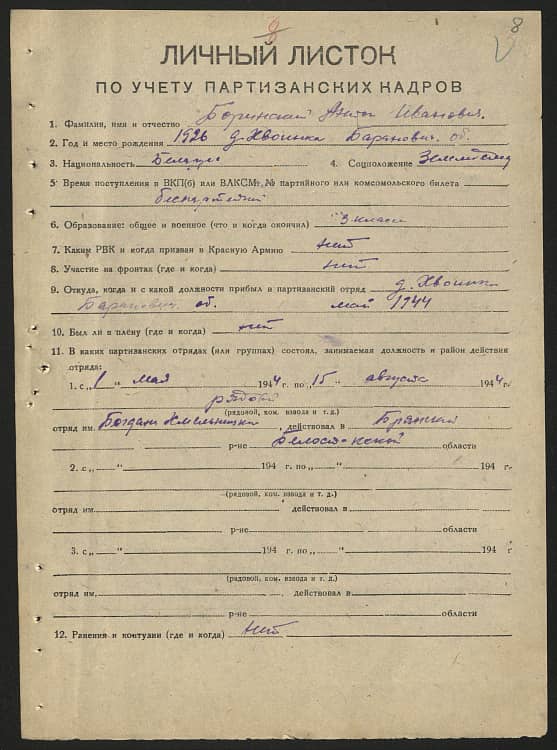 8
ЛИЧНЫЙ ЛИСТОК
ПО УЧЕТУ ПАРТИЗАНСКИХ КАДРОВ
1. Фамилия, имя и отчество Антон Иванович.
2. Год и место рождения 1926 д. Хвоинка Баранович. об.
3. Национальность Белорус 4. Соцположение
5. Время поступления в ВКП(б) или ВЛКСМ, № партийного или комсомольского билета
беспартейный
6. Образование: общее и военное (что и когда окончил) 3 класса
7. Каким РВК и когда призван в Красную Армию нит
8. Участие на фронтах (где и когда) нит
9. Откуда, когда и с какой должности прибыл в партизанский отряд д. Хвоинка
Баранович. об. май 1944
10. Был ли в плену (где и когда) нит
11. В каких партизанских отрядах (или группах) состоял, занимаемая должность и район действия
отряда:
1. с „1 “ мая 1944 г. по „15 “ августа 1944 г.
рядовой
(рядовой, ком. взвода и т. д.)
отряд им. Богдана Хмельницки, действовал в
р-не Белостокской области
2. с „ “ 194 г. по „ “ 194 г.
(рядовой, ком. взвода и т. д.)
отряд им. действовал в
р-не области
3. с „ “ 194 г. по „ “ 194 г
(рядовой, ком. взвода и т. д.)
отряд им. действовал в
р-не области
12. Ранения и контузии (где и когда) нит